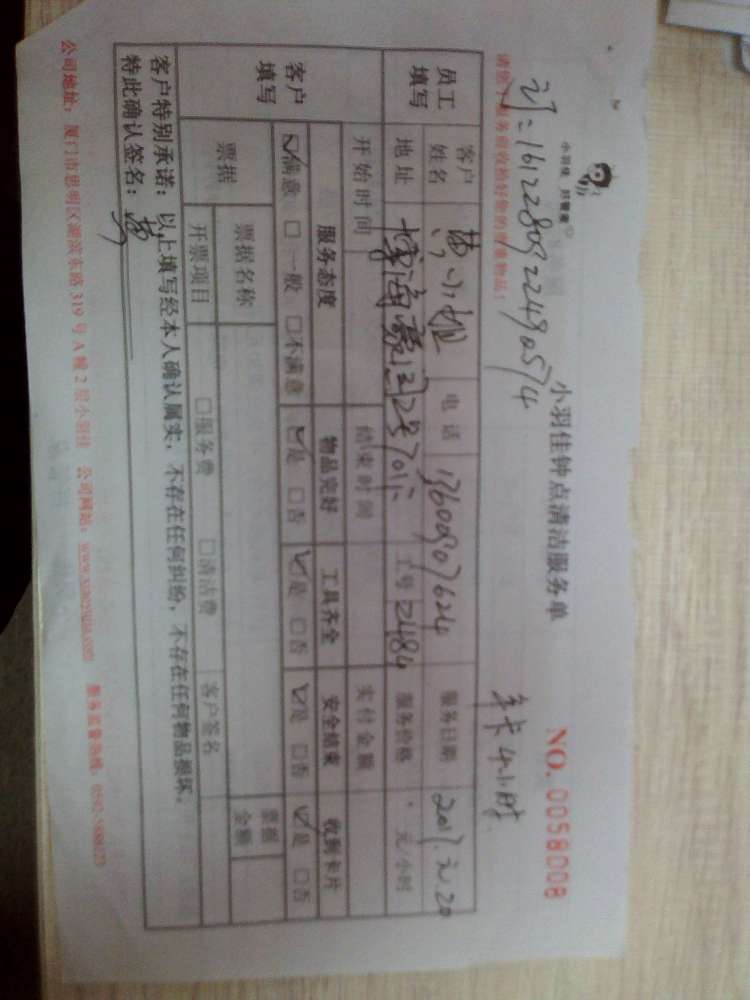 小羽佳 好管家
小羽佳钟点清洁服务单
NO. 0058008
161228092249 0574
年卡4小时
服务前收拾好您的贵重物品!
员工填写
客户姓名 黄小姐 电话 13600907624 服务日期
地址 25701 工号 2484 服务价格 元/小时
开始时间 结束时间 实付金额
客户填写
服务态度 物品完好 工具齐全 安全结束 收到卡片
☑满意 □一般 □不满意 ☑是 □否 ☑是 □否 ☑是 □否 ☑是 □否
票据 票据名称 票据金额
开票项目 □服务费 □清洁费 客户签名
客户特别承诺:以上填写经本人确认属实,不存在任何纠纷,不存在任何物品损坏。
特此确认签名:黄
公司地址:厦门市思明区湖滨东路319号A幢2层小羽佳 公司网站:www.xiaoyujia.com 服务监督热线: